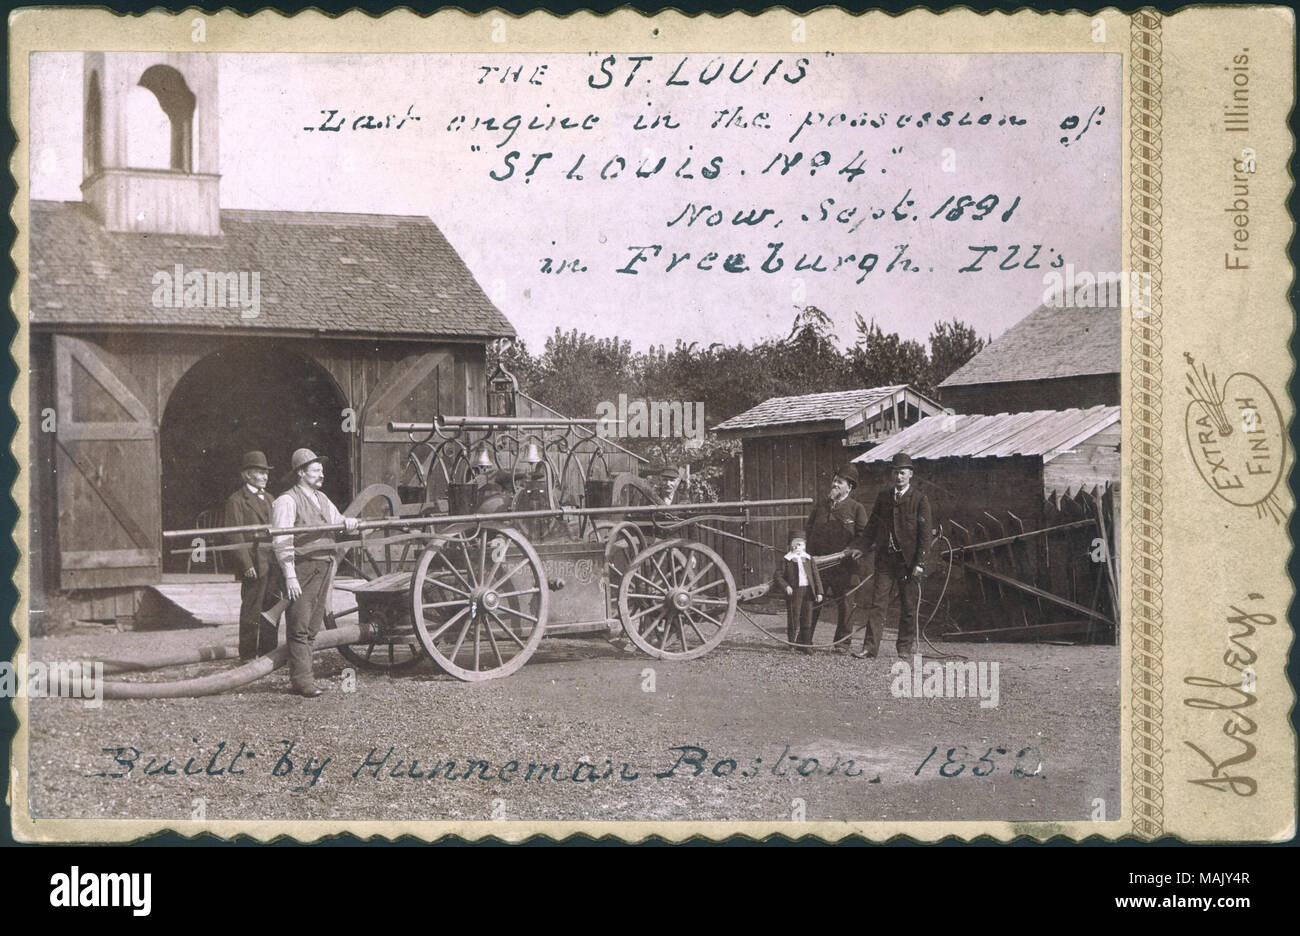 THE "ST. LOUIS"
Last engine in the possession of
"ST. LOUIS. No. 4."
Now, Sept. 1891
in Freeburgh. Ill's
Built by Hunneman Boston, 1850.
Kelley,
EXTRA
FINISH
Freeburg, Illinois.
alamy
Image ID: MAJY4R
www.alamy.com